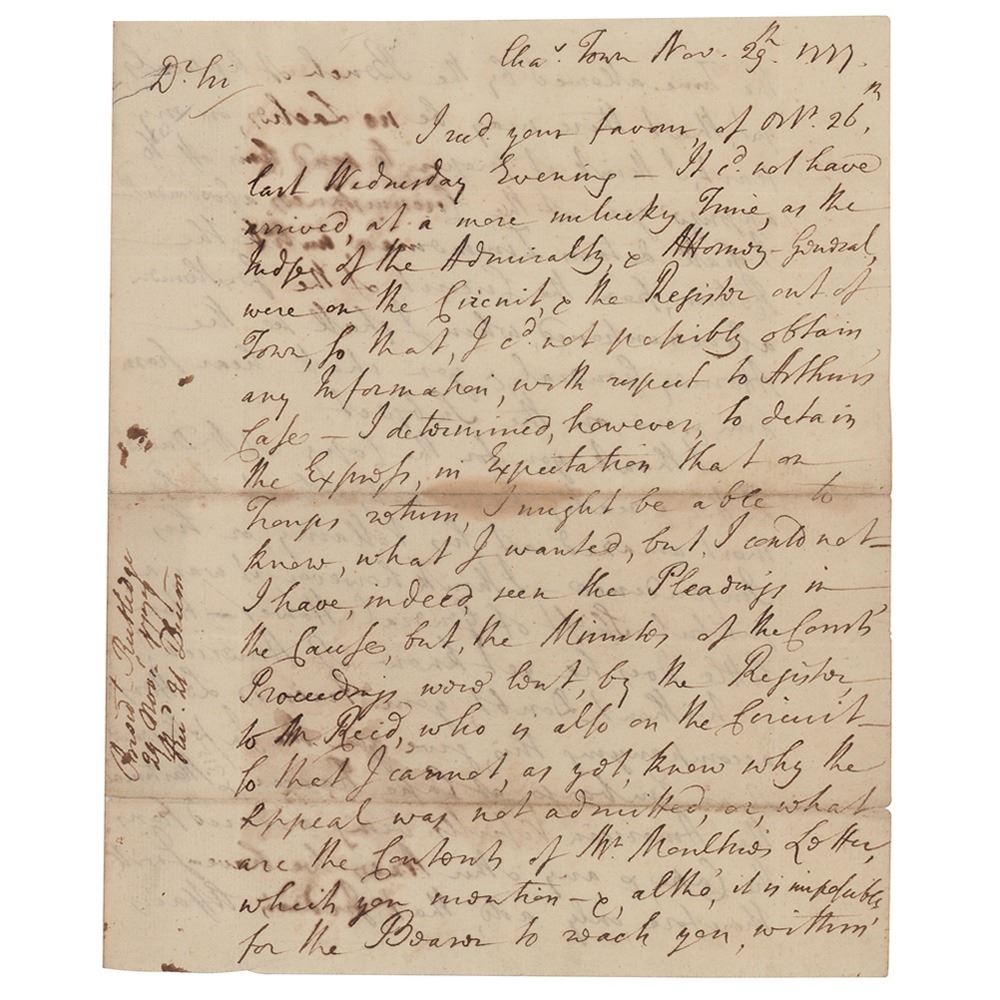 Cha.s Town Nov. 29.th 1777.
D.r Sir
I recd. your favour, of Octr. 26.th
last Wednesday Evening — It c.d not have
arrived, at a more unlucky Time, as the
Judge of the Admiralty, & Attorney-General,
were on the Circuit, & the Register out of
Town, so that, I c.d not possibly obtain
any Information, with respect to Arthur's
Case — I determined, however, to detain
the Express, in Expectation that on
Troups return, I might be able to
know, what I wanted, but I could not —
I have, indeed, seen the Pleadings in
the Cause, but, the Minutes of the Court's
Proceedings were lent, by the Register,
to Mr Reid, who is also on the Circuit —
so that I cannot, as yet, know why the
Appeal was not admitted, or, what
are the Contents of Mr. Moultrie's Letter,
which you mention — &, altho', it is impossible
for the Bearer to reach you, within
Presid.t Rutledge
29 Nov.r 1777
Rec.d 21 Decem